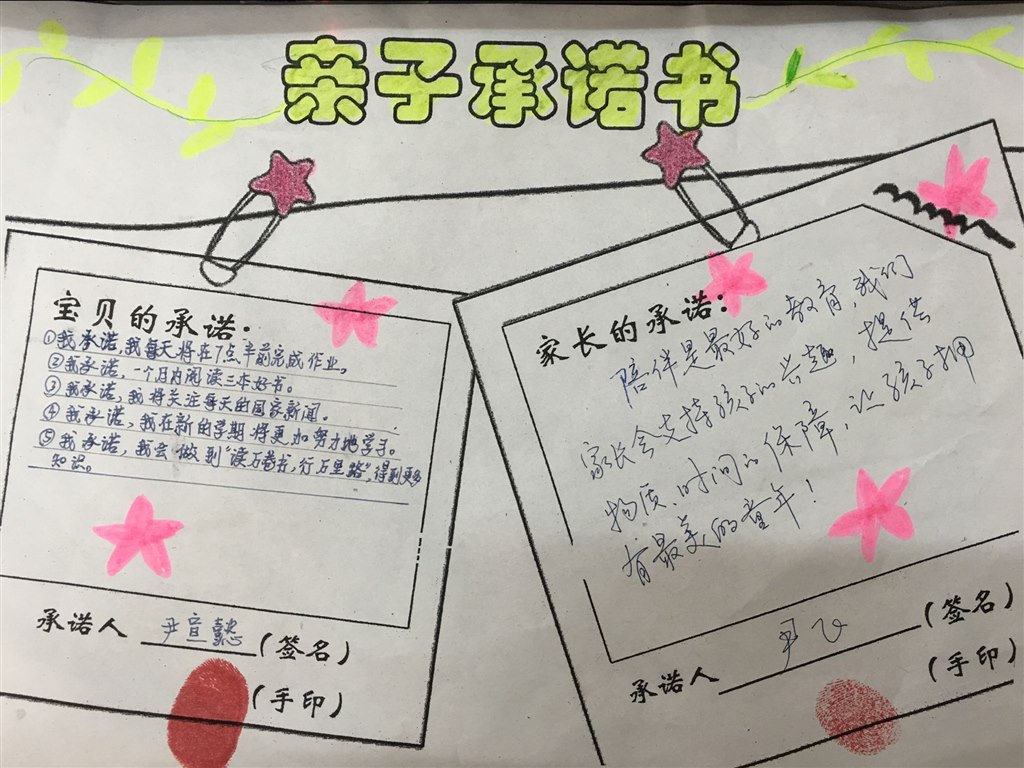 亲子承诺书
宝贝的承诺:
①我承诺,我每天将在7点半前完成作业。
②我承诺,一个月内阅读三本好书。
③我承诺,我将关注每天的国家新闻。
④我承诺,我在新的学期将更加努力地学习。
⑤我承诺,我会做到“读万卷书,行万里路”,得到更多
知识。
承诺人 尹宣懿(签名)
(手印)
家长的承诺:
陪伴是最好的教育,我们
家长会支持孩子的兴趣,提供
物质、时间的保障,让孩子拥
有最美的童年!
承诺人 尹飞 (签名)
(手印)